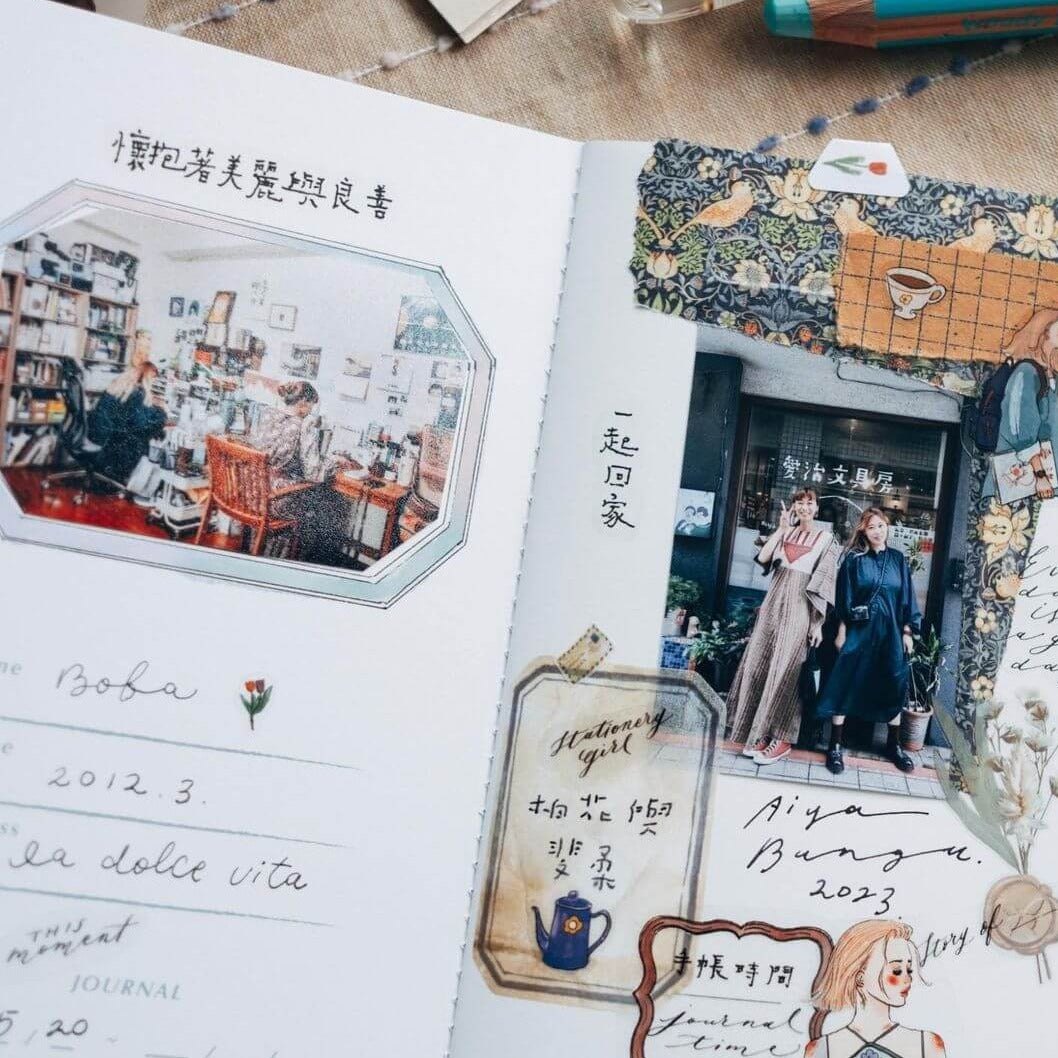 懷抱著美麗與良善
Boba
2012.3.
la dolce vita
THIS
moment
JOURNAL
20
一起回家
愛治文具房
Stationery
girl
棉花與
斐柔
Aiya
Bungu.
2023.
Story of
手帳時間
journal
time